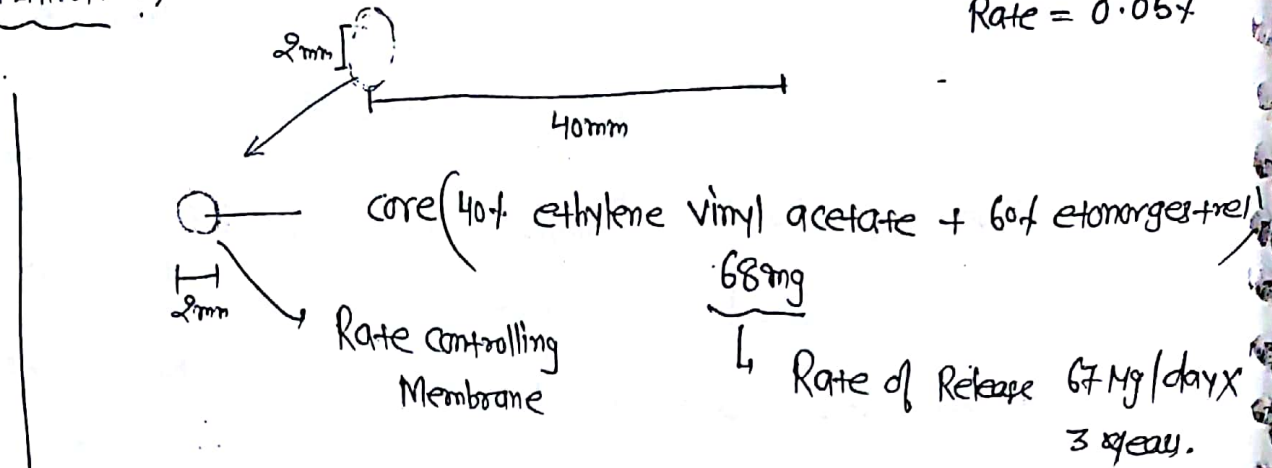 Rate = 0.05%
2mm
40mm
core (40% ethylene vinyl acetate + 60% etonorgestrel)
68mg
2mm
Rate controlling
Membrane
↳ Rate of Release 67 Mg/day x
3 year.